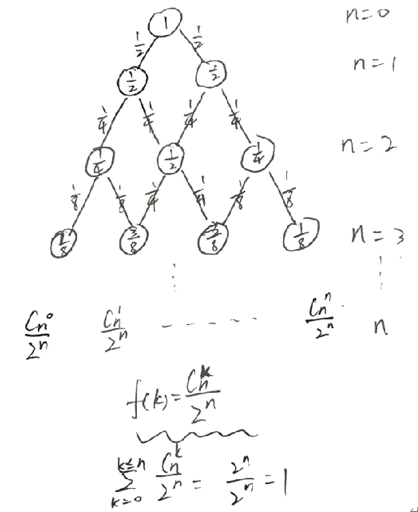 1 n=0
1/2 1/2
1/2 1/2 n=1
1/4 1/4 1/4 1/4
1/4 1/2 1/4 n=2
1/8 1/8 1/4 1/4 1/8 1/8
1/8 3/8 3/8 1/8 n=3
C_n^0/2^n C_n^1/2^n ------ C_n^n/2^n n
f(k)=C_n^k/2^n
∑_{k=0}^{k≤n} C_n^k/2^n = 2^n/2^n = 1